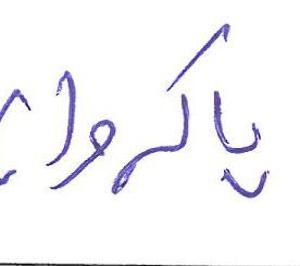 پاکروا